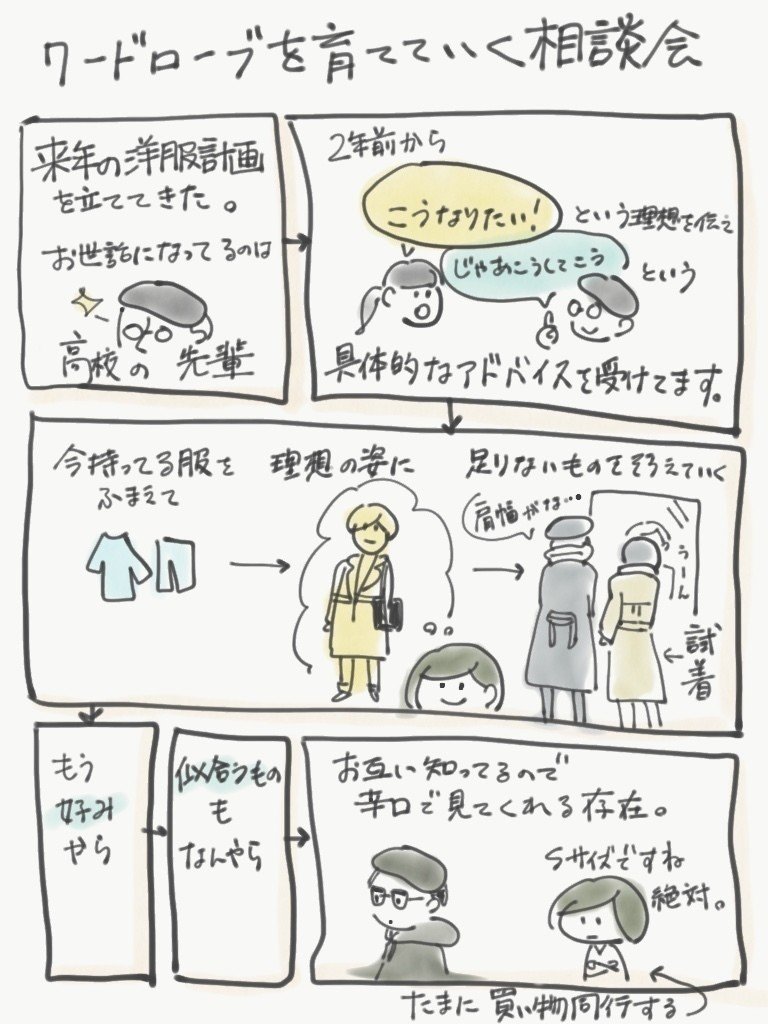 ワードローブを育てていく相談会
来年の洋服計画
を立ててきた。
お世話になってるのは
高校の先輩
2年前から
こうなりたい!
という理想を伝え
じゃあこうしてこう
という
具体的なアドバイスを受けてます。
今持ってる服を
ふまえて
理想の姿に
足りないものをそろえていく
肩幅がな…
うーん
試着
もう
好み
やら
似合うもの
も
なんやら
お互い知ってるので
辛口で見てくれる存在。
Sサイズですね
絶対。
たまに買い物同行する